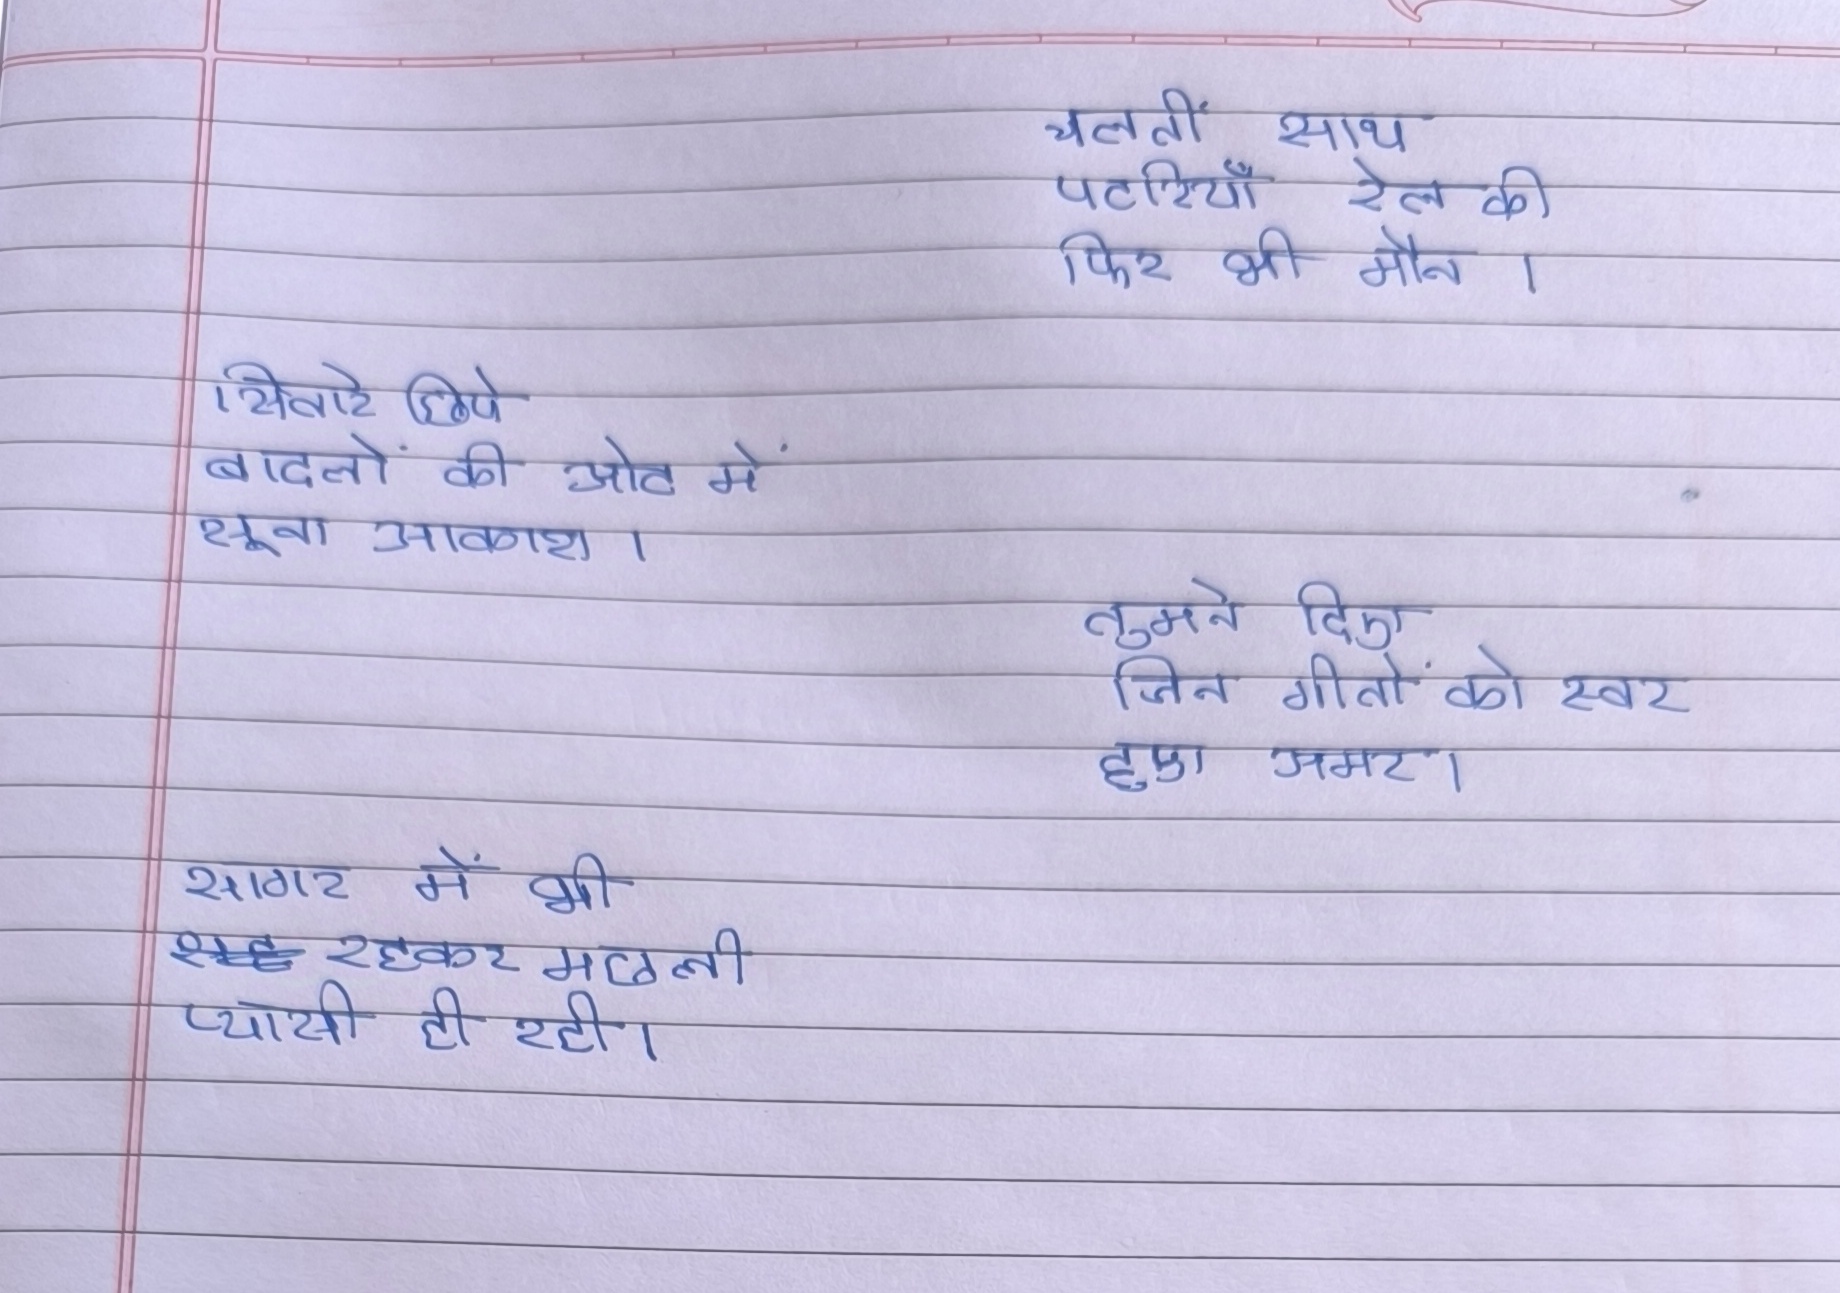 चलतीं साथ
पटरियाँ रेल की
फिर भी मौन ।
सितारे छिपे
बादलों की ओट में
सूना आकाश ।
तुमने दिया
जिन गीतों को स्वर
हुआ अमर ।
सागर में भी
रहकर मछली
प्यासी ही रही ।